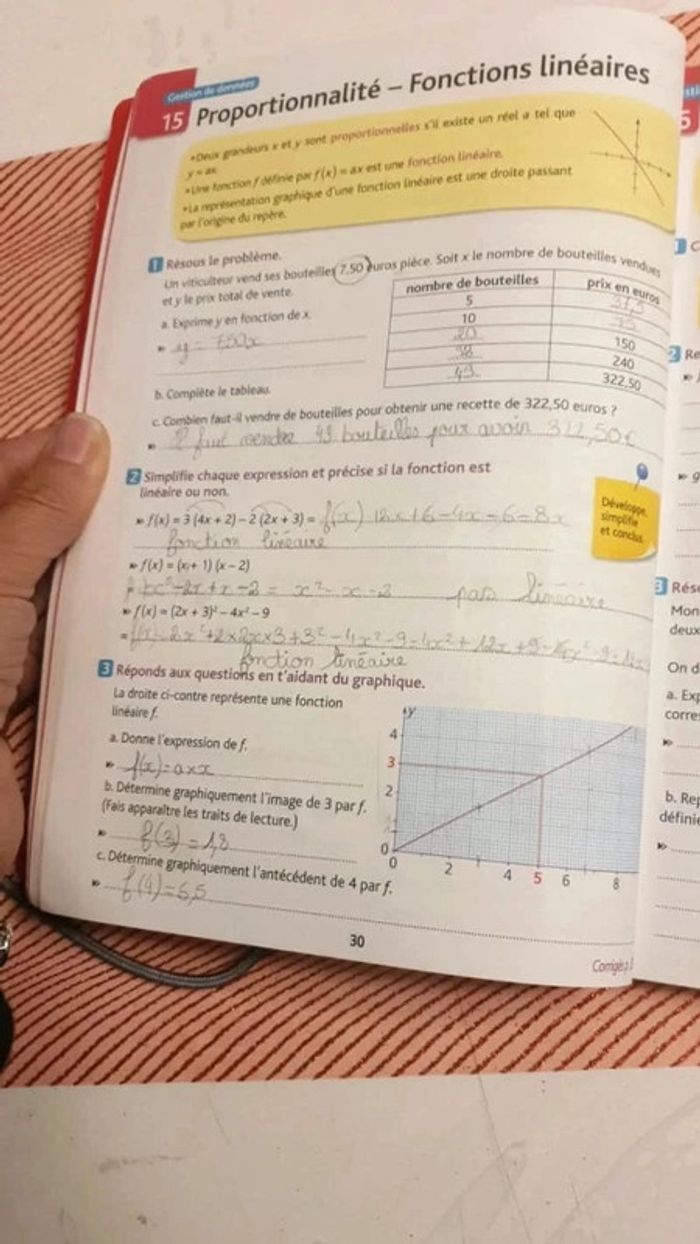 Gestion de données
15 Proportionnalité – Fonctions linéaires
•Deux grandeurs x et y sont proportionnelles s'il existe un réel a tel que
y = ax.
•Une fonction f définie par f(x) = ax est une fonction linéaire.
•La représentation graphique d'une fonction linéaire est une droite passant
par l'origine du repère.
1 Résous le problème.
Un viticulteur vend ses bouteilles 7,50 euros pièce. Soit x le nombre de bouteilles vendues
et y le prix total de vente.
a. Exprime y en fonction de x.
nombre de bouteilles prix en euros
5 37,5
10 75
20 150
240
43 322,50
b. Complète le tableau.
c. Combien faut-il vendre de bouteilles pour obtenir une recette de 322,50 euros ?
Il faut 43 bouteilles pour avoir 322,50€
2 Simplifie chaque expression et précise si la fonction est
linéaire ou non.
f(x) = 3 (4x + 2) – 2 (2x + 3) = f(x) 12x + 6 - 4x - 6 = 8x
fonction linéaire
Développe,
simplifie
et conclus.
f(x) = (x + 1) (x – 2)
= x² - x - 2 pas linéaire
f(x) = (2x + 3)² – 4x² – 9
fonction linéaire
3 Réponds aux questions en t'aidant du graphique.
La droite ci-contre représente une fonction
linéaire f.
a. Donne l'expression de f.
f(x) = a×x
b. Détermine graphiquement l'image de 3 par f.
(Fais apparaître les traits de lecture.)
f(3) = 1,8
c. Détermine graphiquement l'antécédent de 4 par f.
f(4) = 6,5
y
4
3
2
1
0
0 2 4 5 6 8
30
Corrigés p.
5
2 Re
g
3 Rés
Mon
deux
On d
a. Exp
corre
b. Rep
définie